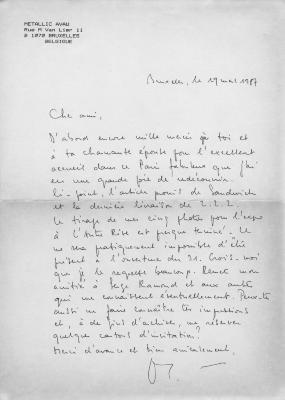 METALLIC AVAU
Rue P. Van Lier 11
B 1070 BRUXELLES
BELGIQUE
Bruxelles, le 19 mai 1987
Cher ami,
D'abord encore mille mercis à toi et
à ta charmante épouse pour l'excellent
accueil dans ce Paris fabuleux que j'ai
eu une grande joie de redécouvrir.
Ci-joint, l'article promis de Sandwich
et la dernière livraison de 2.2.2.
Le tirage de mes cinq photos pour l'expo
à l'Autre Rive est presque terminé. Il
me sera pratiquement impossible d'être
présent à l'ouverture du 31. Crois-moi
que je le regrette beaucoup. Remets mon
amitié à Serge Ramond et aux autres
qui me connaissent éventuellement. Peux-tu
aussi me faire connaître tes impressions
et, à des fins d'archive, me réserver
quelques cartons d'invitation.
Merci d'avance et bien amicalement,